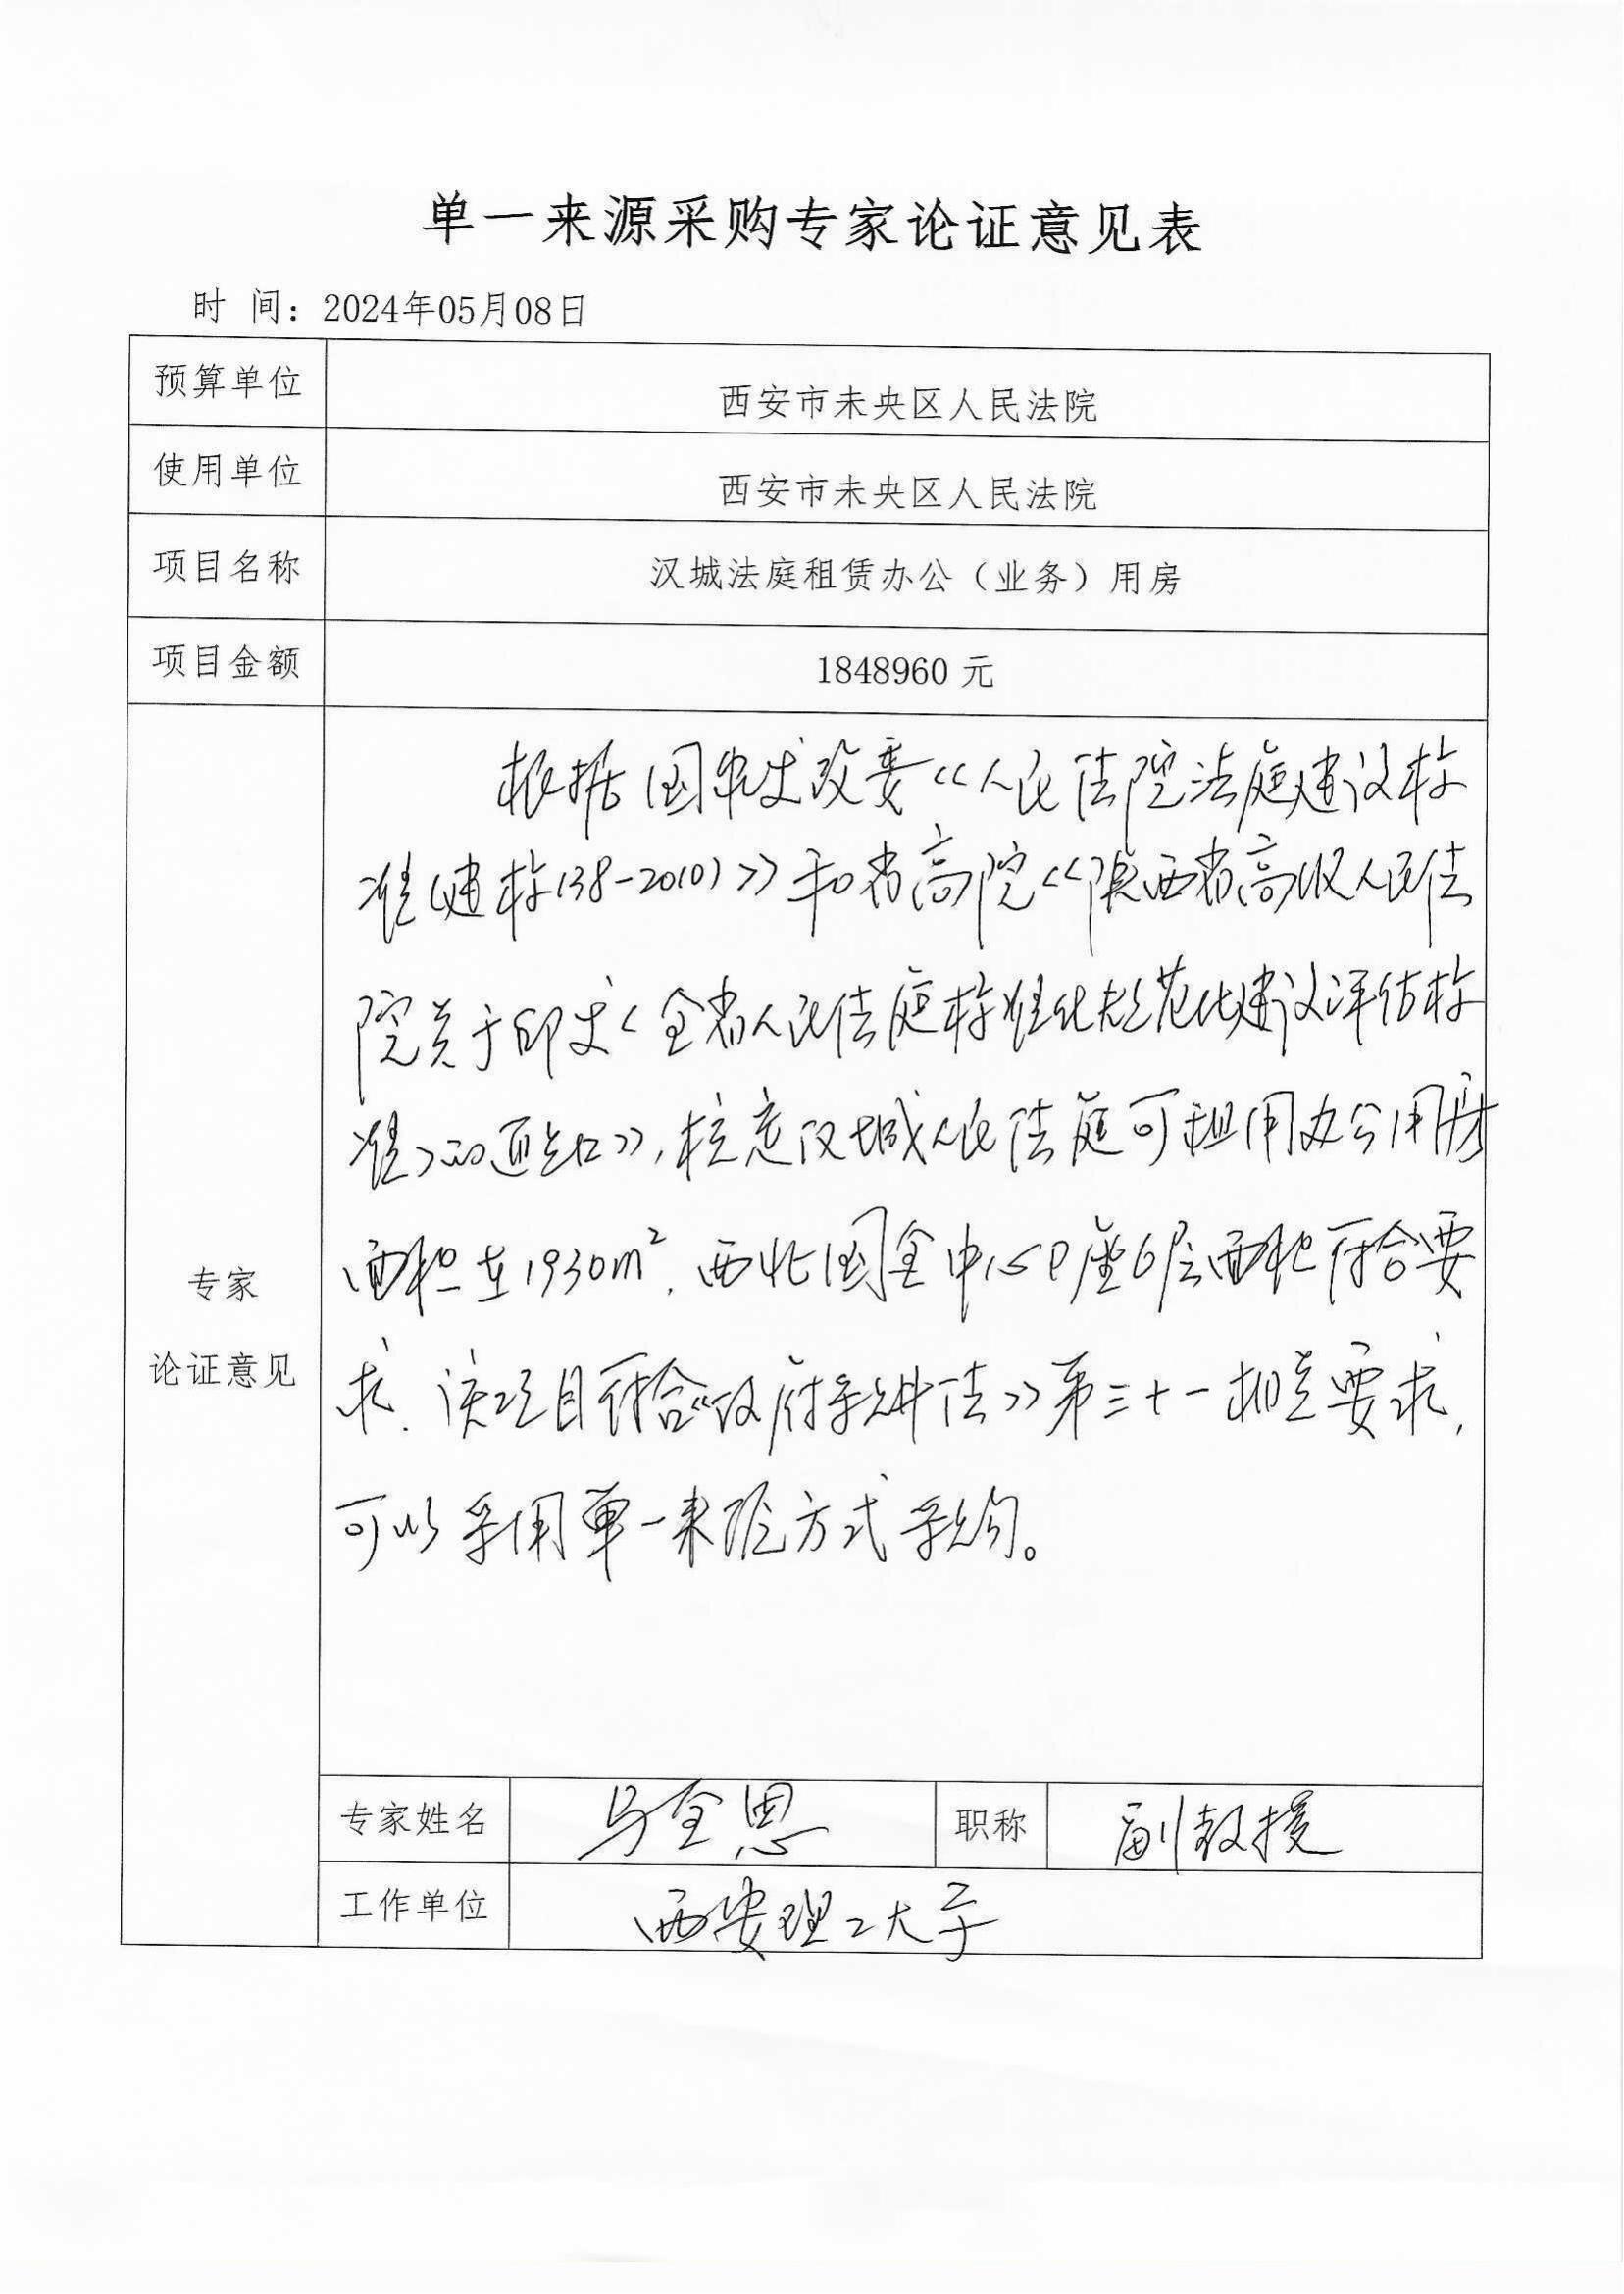 单一来源采购专家论证意见表
时 间：2024年05月08日
预算单位 西安市未央区人民法院
使用单位 西安市未央区人民法院
项目名称 汉城法庭租赁办公（业务）用房
项目金额 1848960 元
专家
论证意见
根据国家发改委《人民法院法庭建设标
准（建标138-2010）》和省高院《陕西省高级人民法
院关于印发<全省人民法庭标准化规范化建设评估标
准>的通知》，核定汉城人民法庭可租用办公用房
面积在1930m²，西北国金中心D座6层面积符合要
求，该项目符合《政府采购法》第三十一相关要求，
可以采用单一来源方式采购。
专家姓名 马全恩 职称 副教授
工作单位 西安理工大学